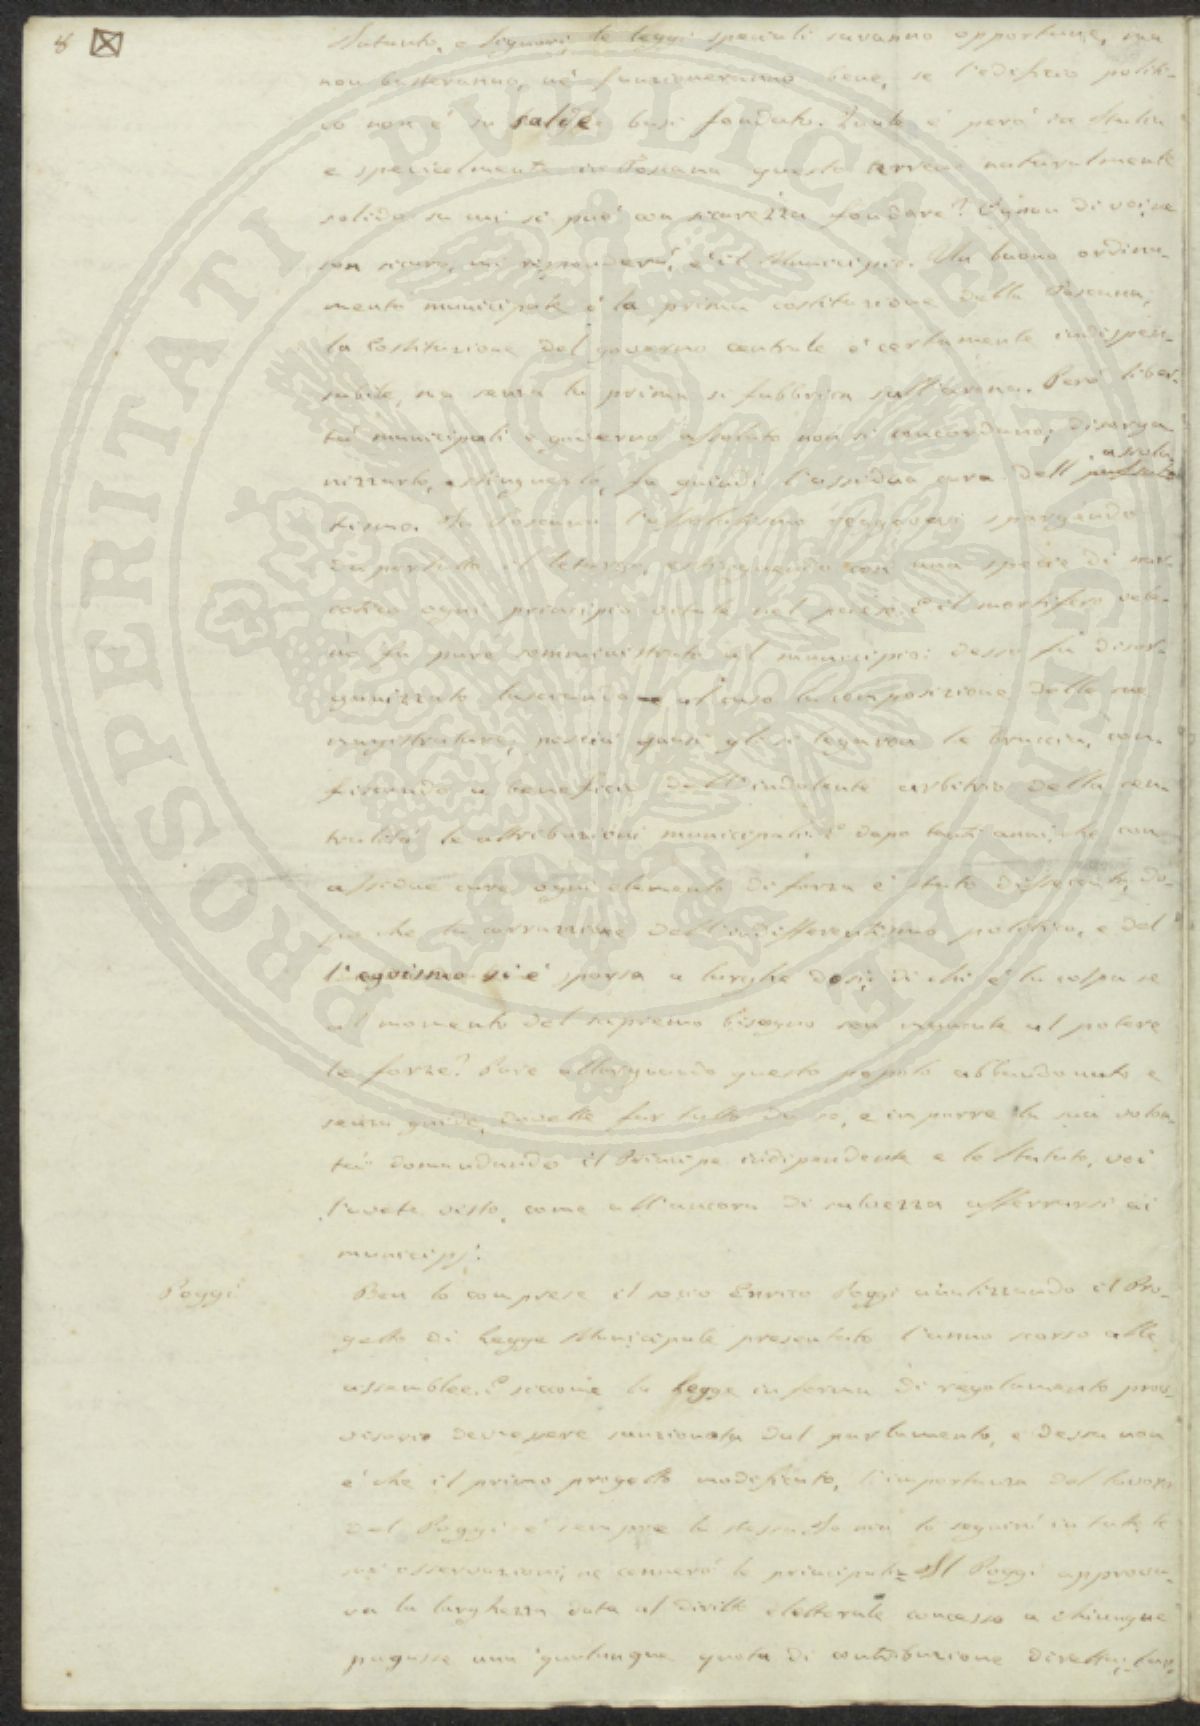 8
Intanto, o Signori, le leggi speciali saranno opportune, ma
non basteranno, nè funzioneranno bene, se l'edifizio politi-
co non è su salde basi fondato. Quale è però in Italia
e specialmente in Toscana questo terreno naturalmente
solido su cui si può con sicurezza fondare? Ognun di voi, ne
son sicuro, mi risponderà, è il Municipio. Un buono ordina-
mento municipale è la prima costituzione della Toscana;
la Costituzione del governo centrale è certamente indispen-
sabile, ma senza la prima si fabbrica sull'arena. Però liber-
tà municipali e governo assoluto non si concordano; disorga-
nizzarlo, estinguerlo, fu quindi l'assidua cura dell' assolu
tismo. In Toscana l'assolutismo reggevasi spargendo
dapertutto il letargo, estinguendo con una specie di nar-
cotico ogni principio vitale nel paese. E il mortifero vele-
no fu pure somministrato al municipio: desso fu disor-
ganizzato lasciando al caso la composizione delle sue
magistrature, poscia quasi gli si legaron le braccia, con-
fiscando a benefizio dell'indolente arbitrio della cen-
tralità le attribuzioni municipali. E dopo tanti anni, che con
assidue cure ogni elemento di forza è stato disseccato, do-
po che la corruzione dell'indifferentismo politico, e del
l'egoismo si è sparsa a larghe dosi, di chi è la colpa se
al momento del supremo bisogno son mancate al potere
le forze? Pure allorquando questo popolo abbandonato e
senza guide, dovette far tutto da se, e imporre la sua volon-
tà domandando il Principe indipendente e lo Statuto, voi
l'avete visto, come all'ancora di salvezza afferrarsi ai
municipj.
Poggi
Ben lo comprese il socio Enrico Poggi analizzando il Pro-
getto di Legge Municipale presentato l'anno scorso alle
assemblee. E siccome la Legge in forma di regolamento prov-
visorio dev'essere sanzionata dal parlamento, e dessa non
è che il primo progetto modificato, l'importanza del lavoro
del Poggi è sempre la stessa. Io non lo seguirò in tutte le
sue osservazioni, ne cennerò le principali. Il Poggi approva-
va la larghezza data al diritto elettorale concesso a chiunque
pagasse una qualunque quota di contribuzione diretta;